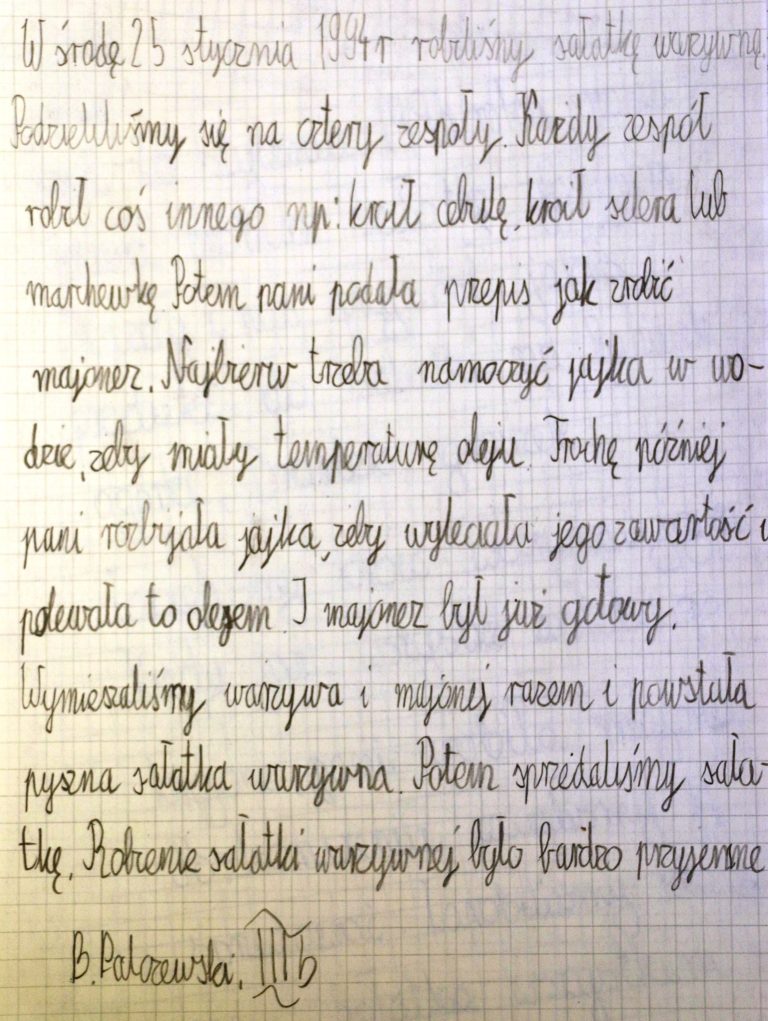 W środę 25 stycznia 1994 r robiliśmy sałatkę warzywną.
Podzieliliśmy się na cztery zespoły. Każdy zespół
robił coś innego np: kroił cebulę, kroił selera lub
marchewkę. Potem pani podała przepis jak zrobić
majonez. Najbierw trzeba namoczyć jajka w wo-
dzie, żeby miały temperaturę oleju. Trochę później
pani rozbijała jajka, żeby wyleciała jego zawartość i
polewała to olejem. I majonez był już gotowy.
Wymieszaliśmy warzywa i majónej razem i powstała
pyszna sałatka warzywna. Potem sprzedaliśmy sała-
tkę. Robienie sałatki warzywnej było bardzo przyjemne
B. Palczewski. III b